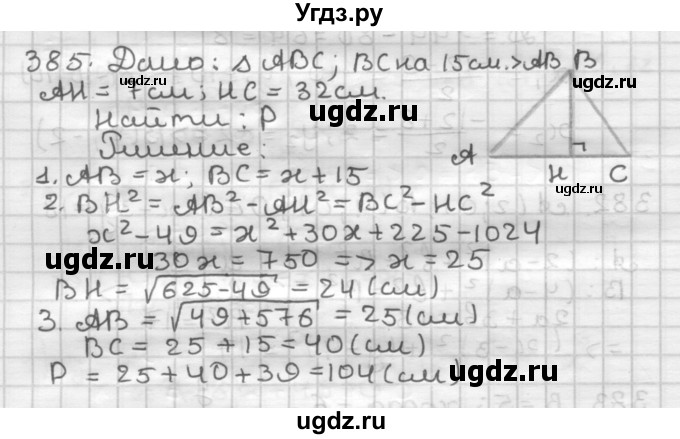 Угдз.ру
385. Дано: Δ ABC; BC на 15см. > AB
AH = 7см; HC = 32см.
Найти: P
Решение:
B
A
H
C
1. AB = x; BC = x + 15
2. BH² = AB² - AH² = BC² - HC²
x² - 49 = x² + 30x + 225 - 1024
30x = 750 => x = 25
BH = √625 - 49 = 24 (см)
3. AB = √49 + 576 = 25 (см)
BC = 25 + 15 = 40 (см)
P = 25 + 40 + 39 = 104 (см)
ugdz.ru
ugdz.ru
ugdz.ru
ugdz.ru
ugdz.ru
ugdz.ru
ugdz.ru
ugdz.ru